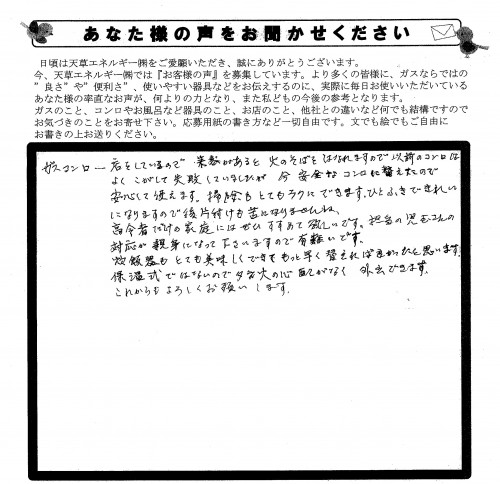 あなた様の声をお聞かせください
日頃は天草エネルギー㈱をご愛顧いただき、誠にありがとうございます。
今、天草エネルギー㈱では『お客様の声』を募集しています。より多くの皆様に、ガスならではの
”良さ”や”便利さ”、使いやすい器具などをお伝えするのに、実際に毎日お使いいただいている
あなた様の率直なお声が、何よりの力となり、また私どもの今後の参考となります。
ガスのこと、コンロやお風呂など器具のこと、お店のこと、他社との違いなど何でも結構ですので
お気づきのことをお寄せ下さい。応募用紙の書き方など一切自由です。文でも絵でもご自由に
お書きの上お送りください。
ガスコンロ ― 店をしているので 来客があると 火のそばをはなれますので以前のコンロは
よくこがして失敗していましたが 今 安全な コンロに替えたので
安心して使えます。掃除も とてもラクにできます。ひとふきできれい
になりますので後片付けも苦になりませんね。
高令者だけの家庭にはぜひ すすめて欲しいです。担当の児玉さんの
対応が 親身になって下さいますので有難いです。
炊飯器も とても美味しくできてもっと早く替えれば良かったと思います。
保温式ではないので 火の心配がなく 外出できます。
これからもよろしくお願いします。